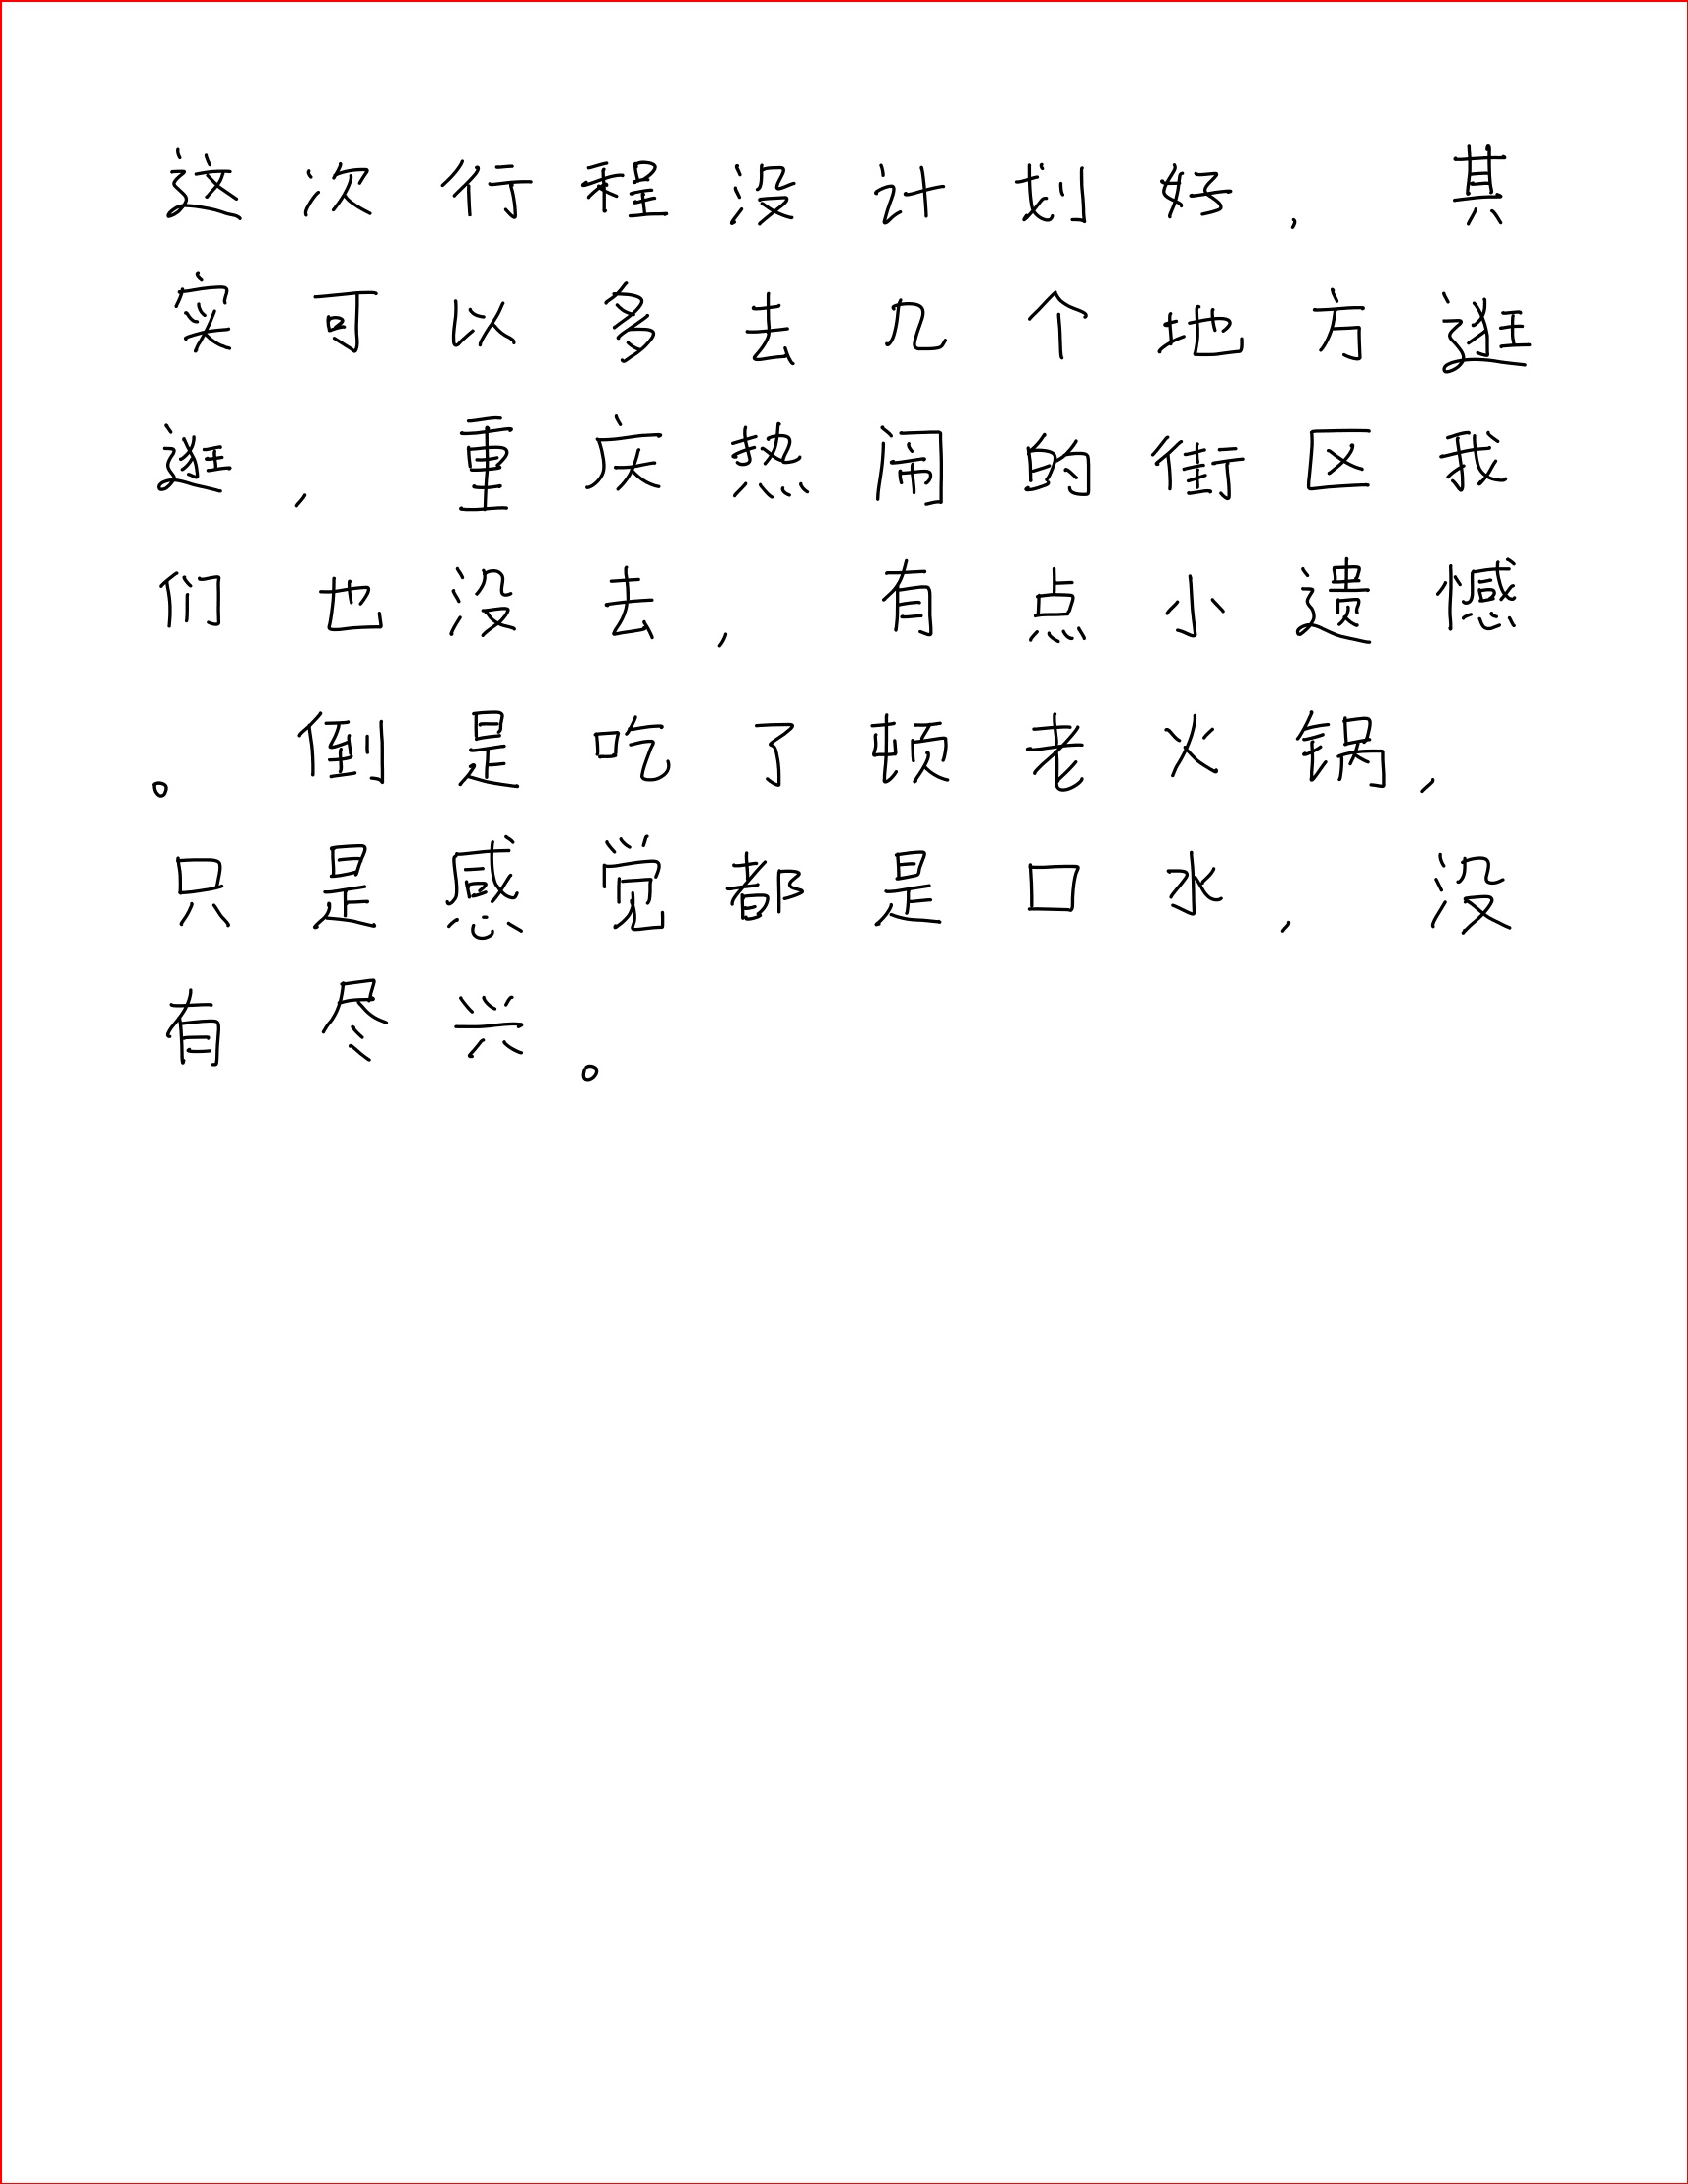 这次行程没计划好，其
实可以多去几个地方逛
逛，重庆热闹的街区我
们也没去，有点小遗憾
。倒是吃了顿老火锅，
只是感觉都是口水，没
有尽兴。